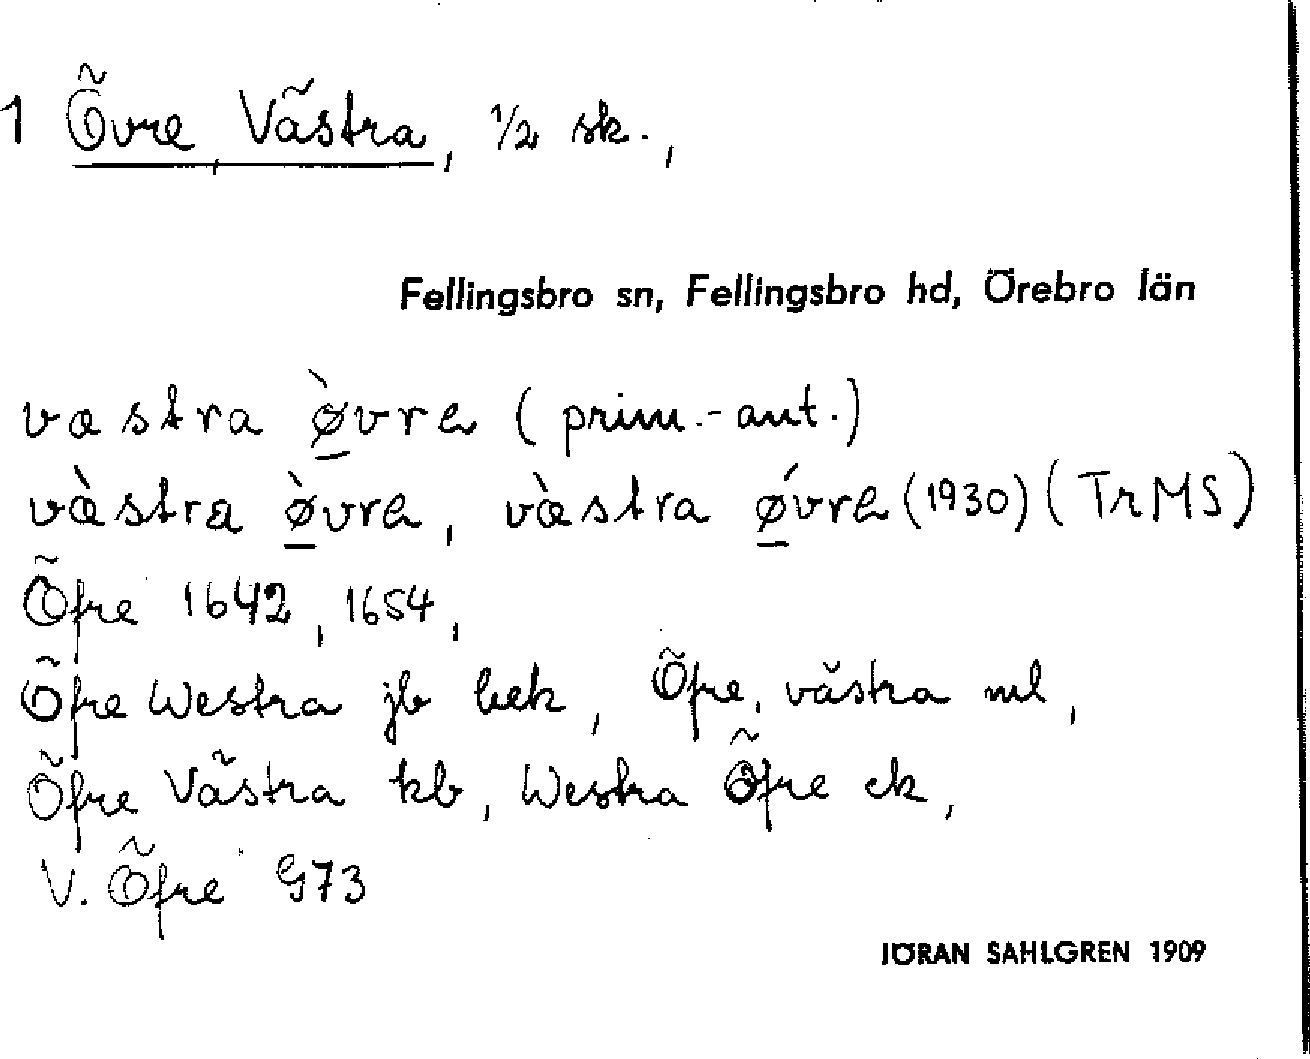 1 Övre, Västra, 1/2 sk.,
Fellingsbro sn, Fellingsbro hd, Örebro län
væstra ø̀vrɐ (prim.-ant.)
væ̀stra ø̀vrɐ, væ̀stra ǿvrɐ (1930) (TrMS)
Öfre 1642, 1654,
Öfre Westra jb bek, Öfre, västra ml,
Öfre Västra kb, Westra Öfre ek,
V. Öfre G73
JÖRAN SAHLGREN 1909